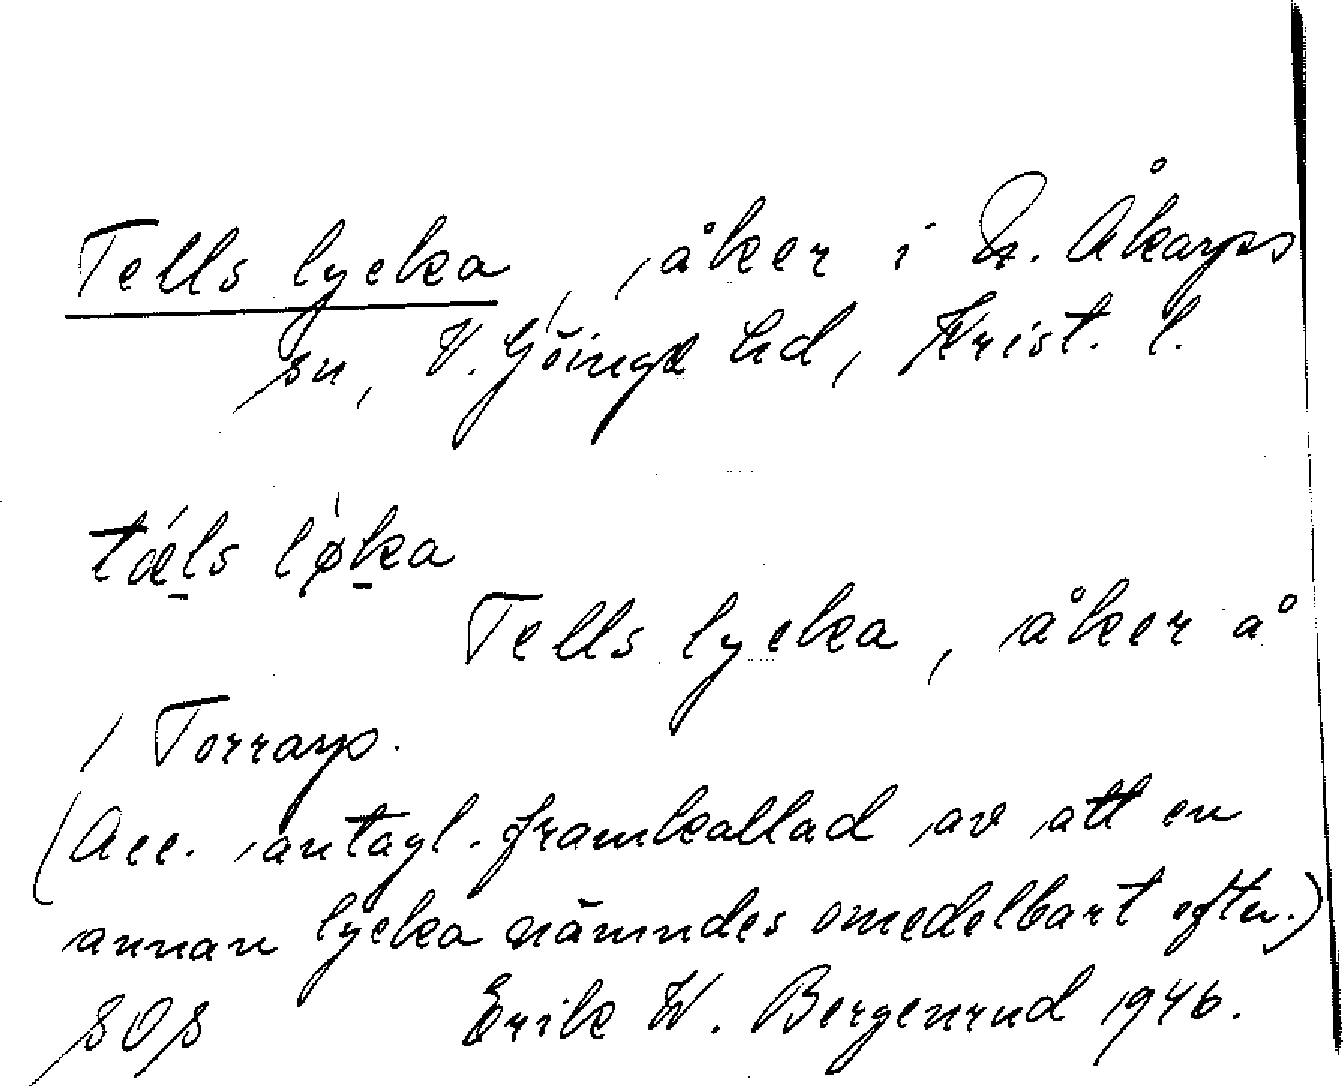 Tells lycka, åker i N. Åkarps
sn, V. Göinge hd, Krist. l.
tǽls lø̍ka
Tells lycka, åker å
/ Torrarp.
(Acc. antagl. framkallad av att en
annan lycka nämndes omedelbart efter.)
SOS Erik W. Bergenrud 1946.